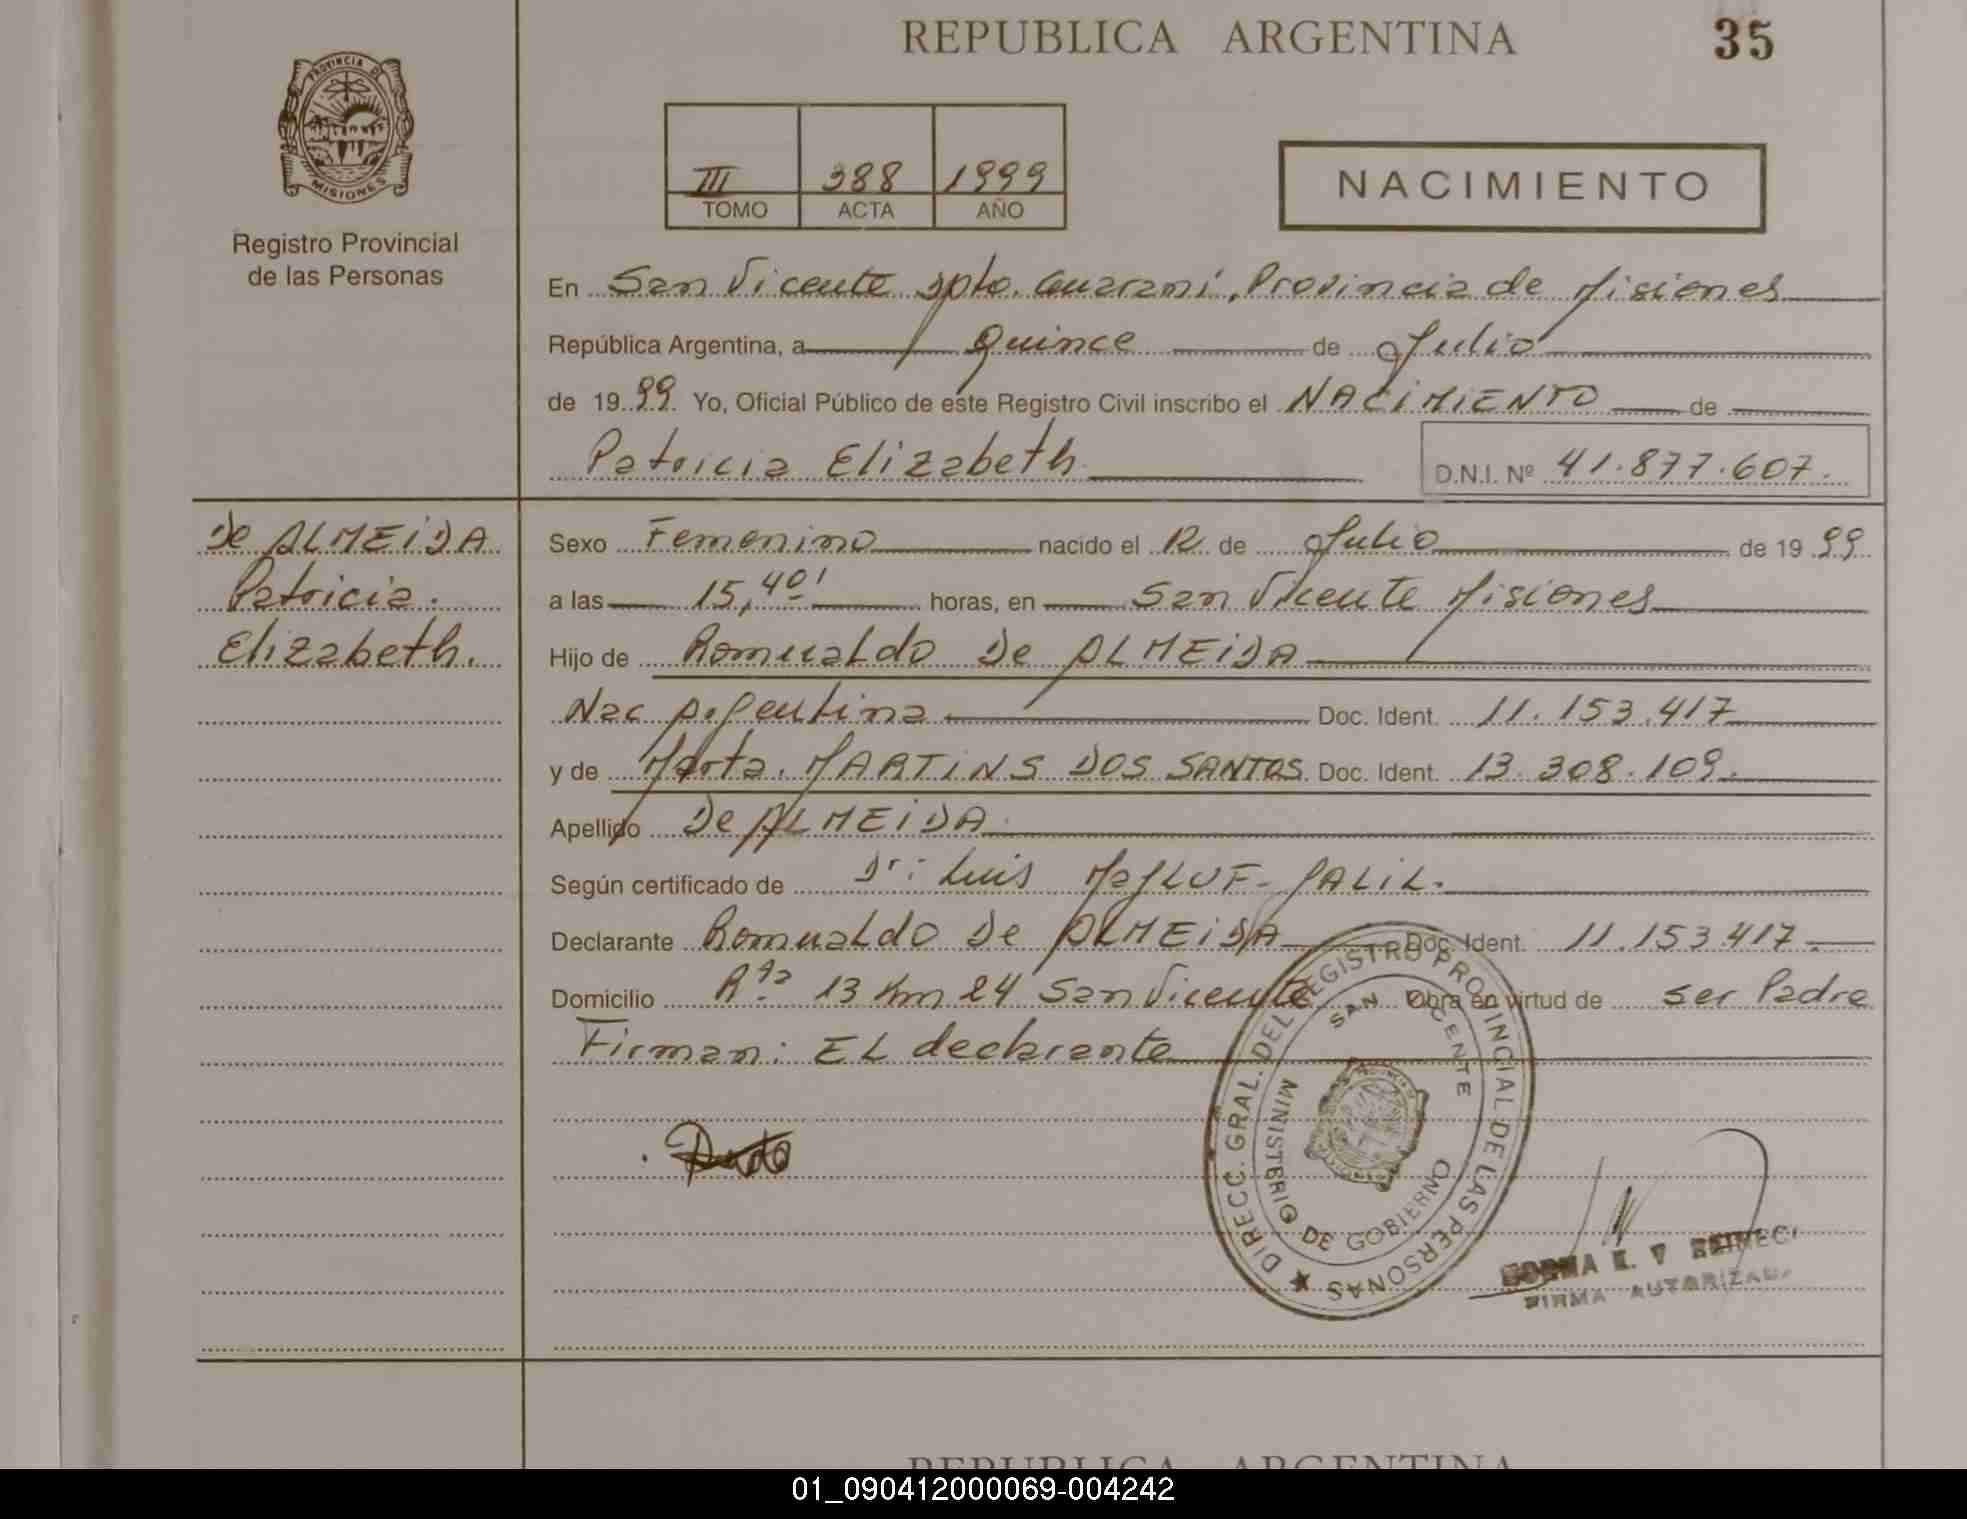 REPUBLICA ARGENTINA
35
PROVINCIA DE
MISIONES
Registro Provincial
de las Personas
III 388 1999
TOMO ACTA AÑO
NACIMIENTO
En San Vicente Dpto. Guaraní, Provincia de Misiones
República Argentina, a Quince de Julio
de 1999 Yo, Oficial Público de este Registro Civil inscribo el NACIMIENTO de
Patricia Elizabeth
D.N.I. Nº 41.877.607.
De ALMEIDA
Patricia.
Elizabeth.
Sexo Femenino nacido el 12 de Julio de 1999
a las 15,40' horas, en San Vicente Misiones
Hijo de Romualdo De ALMEIDA
Nac Argentina Doc. Ident. 11.153.417
y de Marta. MARTINS DOS SANTOS Doc. Ident. 13.308.109.
Apellido De ALMEIDA
Según certificado de Dr: Luis
Declarante Romualdo De ALMEIDA Doc. Ident. 11.153.417.
Domicilio Rta 13 Km 24 San Vicente Obra en virtud de ser Padre
Firman: EL declarante
DIRECC. GRAL. DEL REGISTRO PROVINCIAL DE LAS PERSONAS
SAN VICENTE
MINISTERIO DE GOBIERNO
NORMA E. V
FIRMA AUTORIZADA
REPUBLICA ARGENTINA
01_090412000069-004242